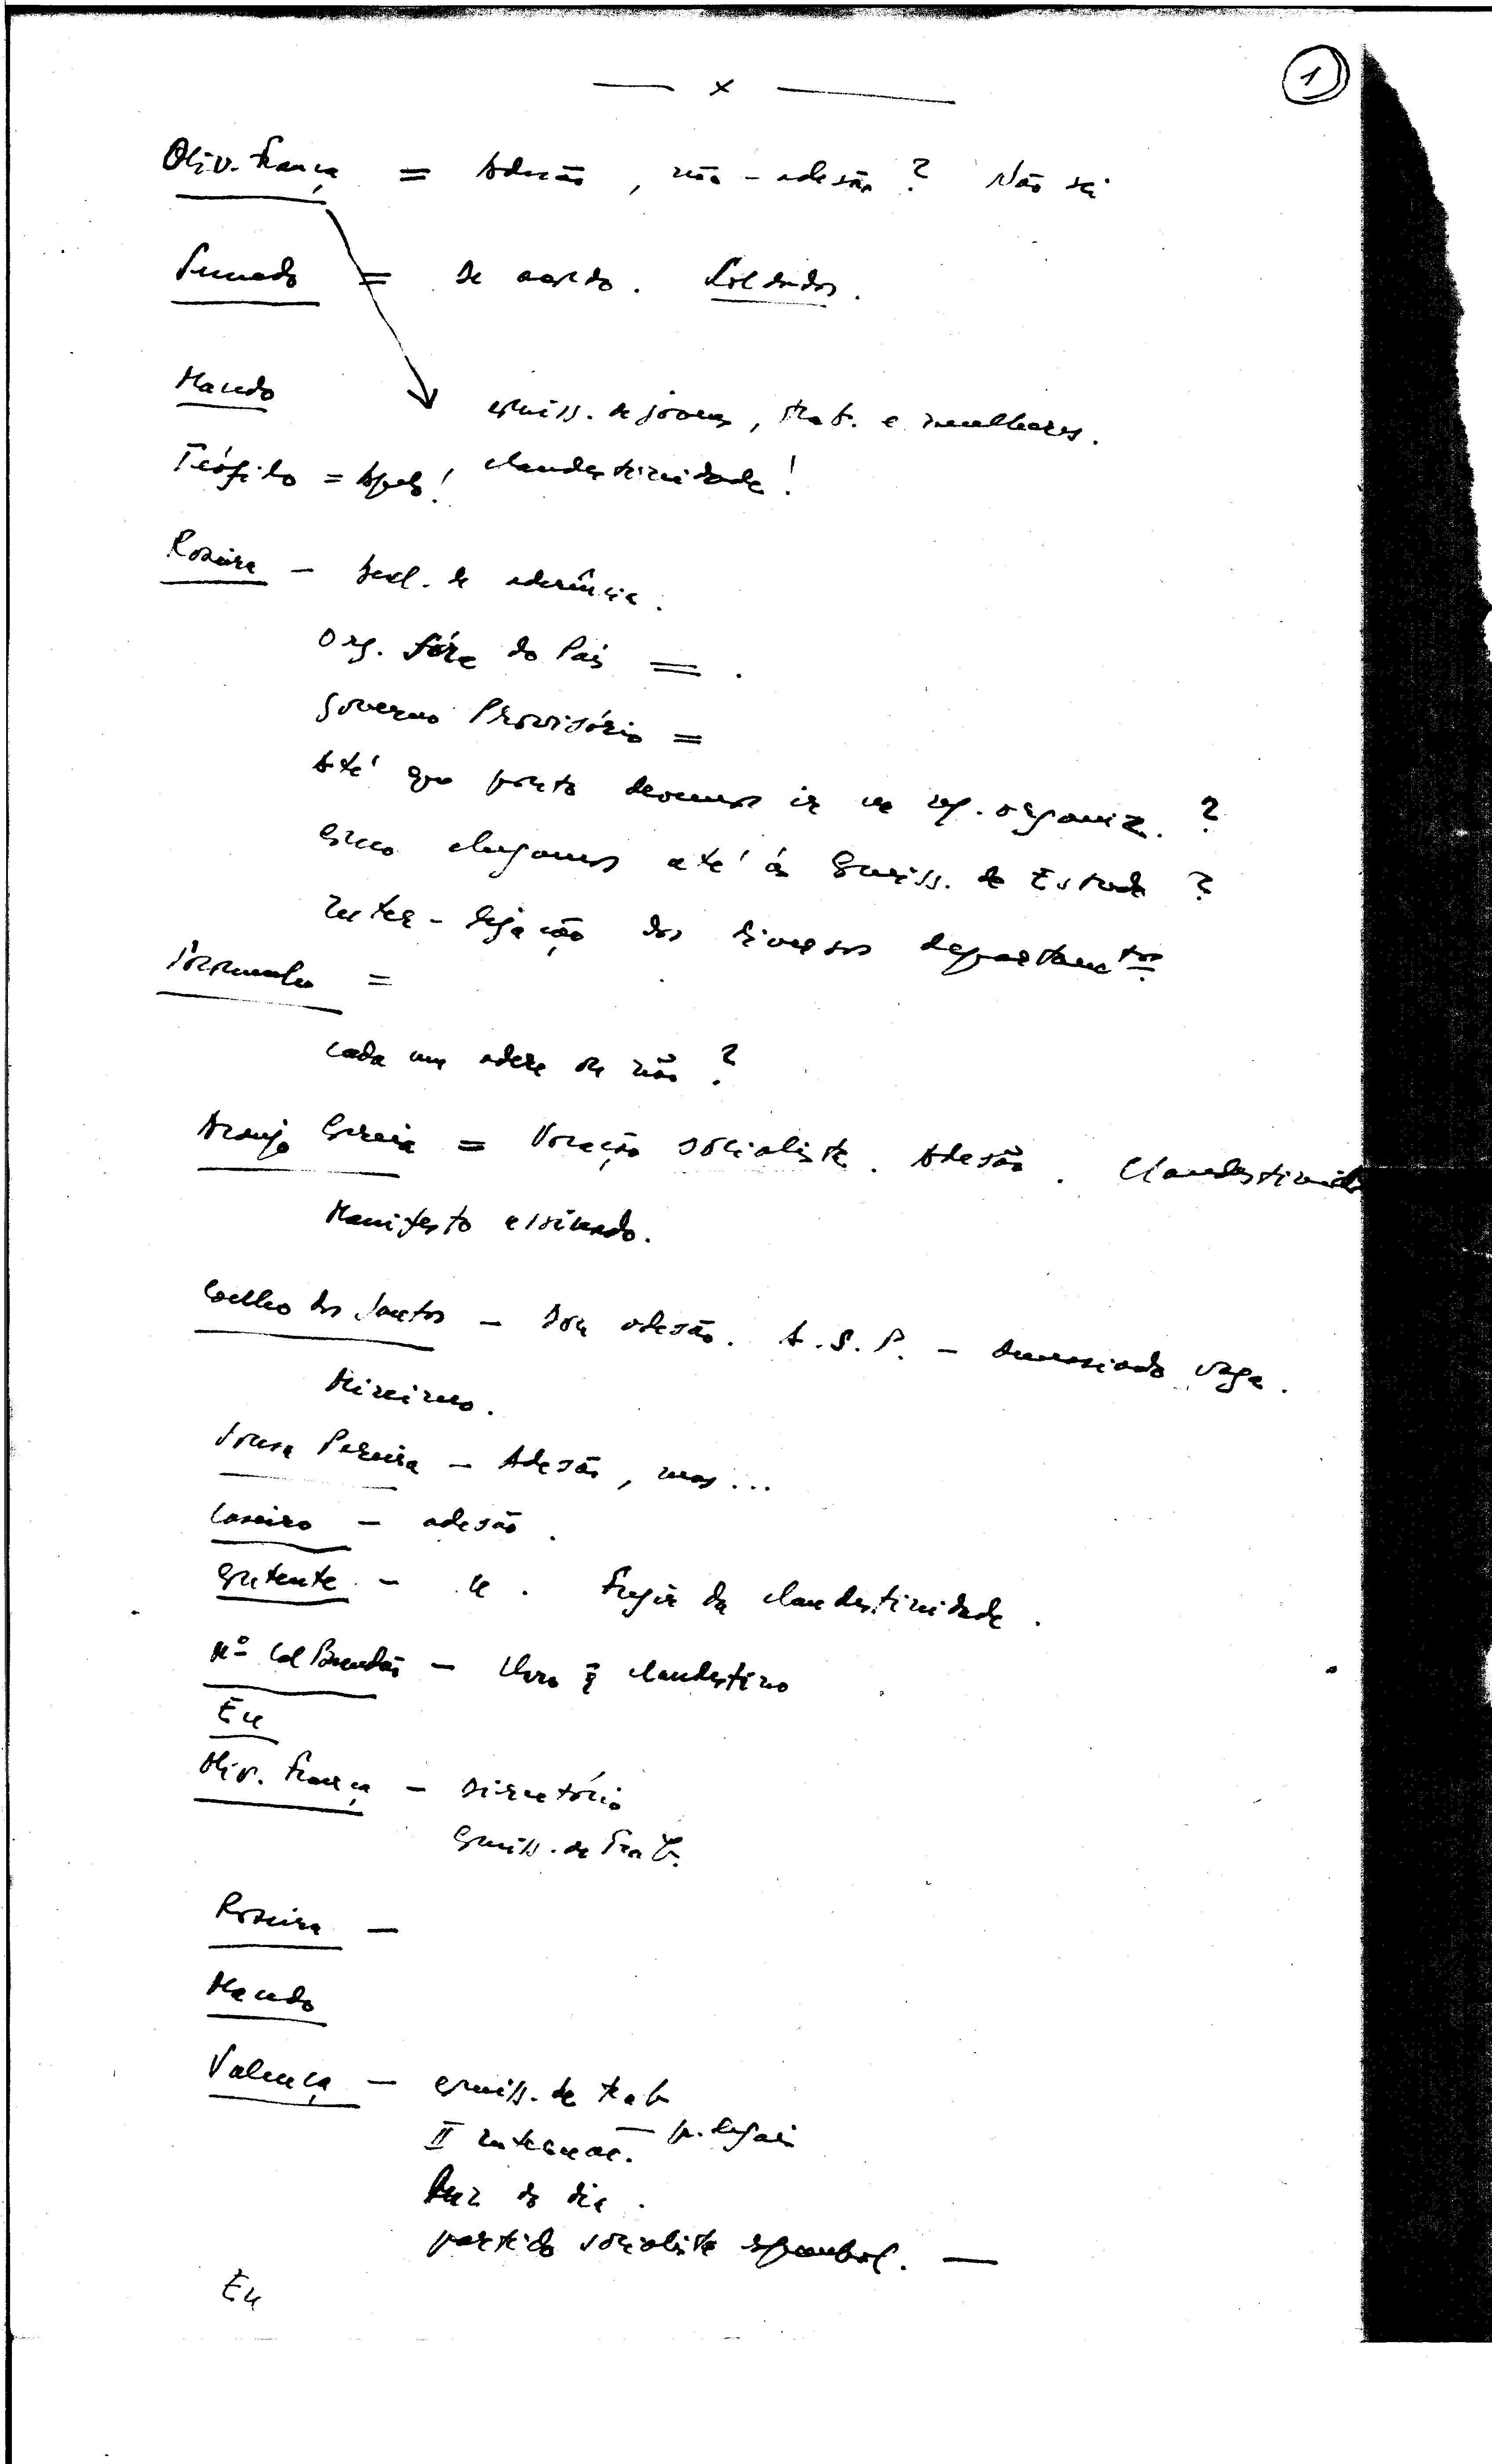 1
— x —
Oliv. França = Adesão, não-adesão? Não sei
= de acordo. Soldados.
Macedo comiss. de jovens, trab. e mulheres.
Teófilo = Apelo! clandestinidade!
Roseira — Decl. de aderência.
Org. fóra do País = .
Governo Provisório =
Até que ponto devemos ir na reg. organiz. ?
Como chegamos até às Comiss. de Estudo ?
Inter-ligação dos diversos departamtos.
=
cada um adere ou não ?
Araujo Correia = Vocação socialista. Adesão. Clandestinida
Manifesto assinado.
Coelho dos Santos — Dou adesão. A.S.P. — demasiado vaga.
Mínimo.
Sousa Pereira — Adesão, mas...
Caseiro — adesão.
— Fugir da clandestinidade.
Mº Cal Brandão — clandestino
Eu
Oliv. França — Directório
Comiss. de Trab.
Roseira —
Macedo
Valença — comiss. de trab
II Internac. — p. legais
Luz do dia.
partido socialista espanhol. —
Eu